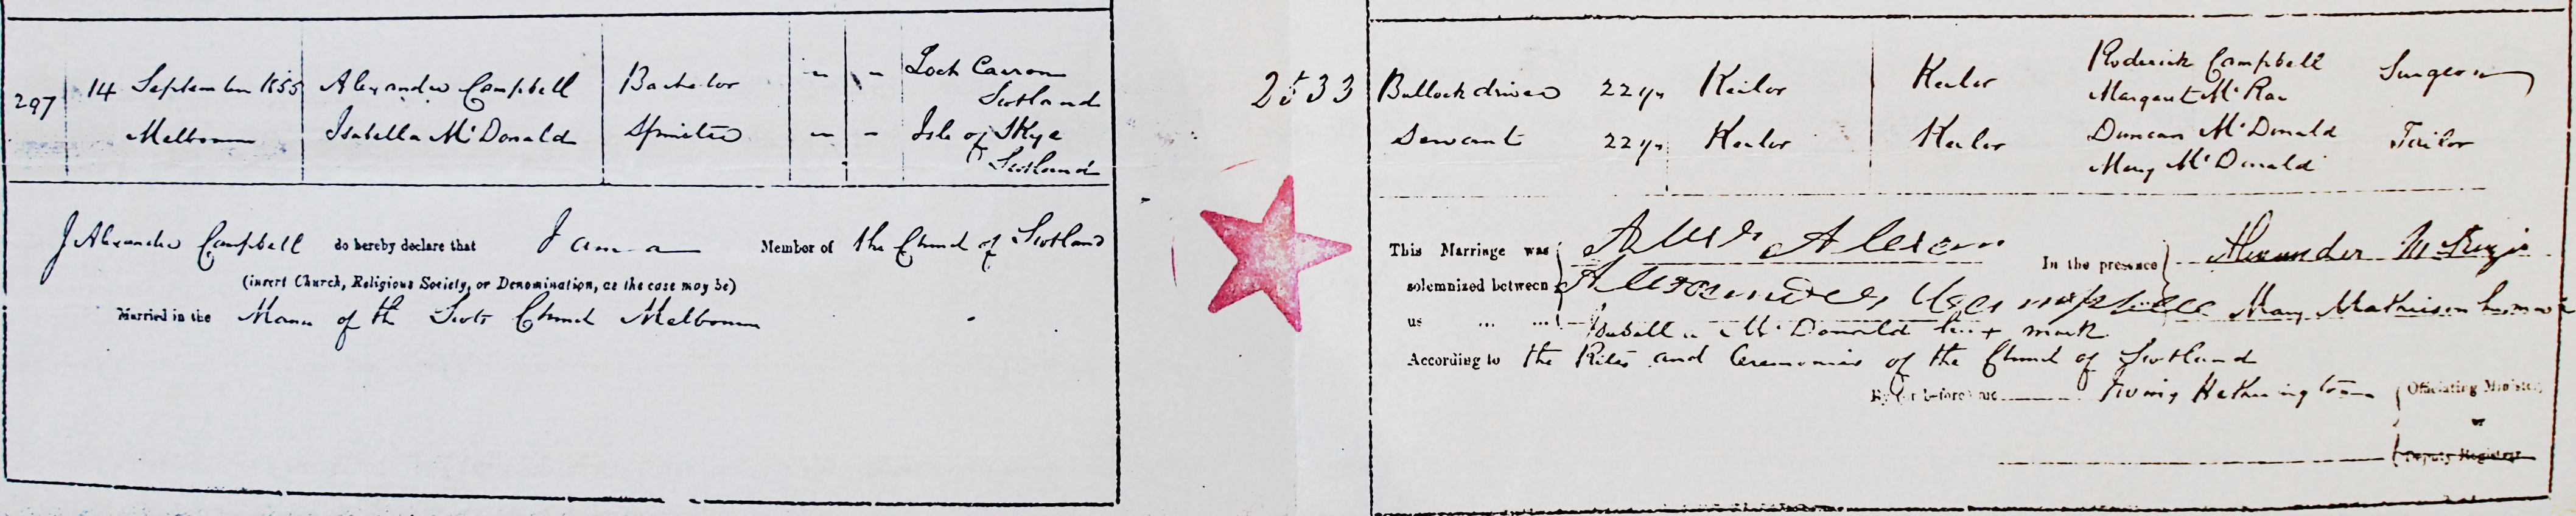 297 14 September 1855 Alexander Campbell Bachelor - - Loch Carron Scotland
Melbourne Isabella McDonald Spinster - - Isle of Skye Scotland
I Alexander Campbell do hereby declare that I am a Member of the Church of Scotland
(insert Church, Religious Society, or Denomination, as the case may be)
Married in the Manse of the Scots Church Melbourne
2533 Bullock driver 22 yrs Keilor Keilor Roderick Campbell Surgeon
Margaret McRae
Servant 22 yrs Keilor Keilor Duncan McDonald Tailor
Mary McDonald
This Marriage was
solemnized between
us ... ...
Alexander Campbell
Isabella McDonald her x mark
In the presence
Alexander McKenzie
Mary Mathieson her mark
According to the Rites and Ceremonies of the Church of Scotland
By (or before) me Irving Hetherington Officiating Minister,
or
Deputy Registrar